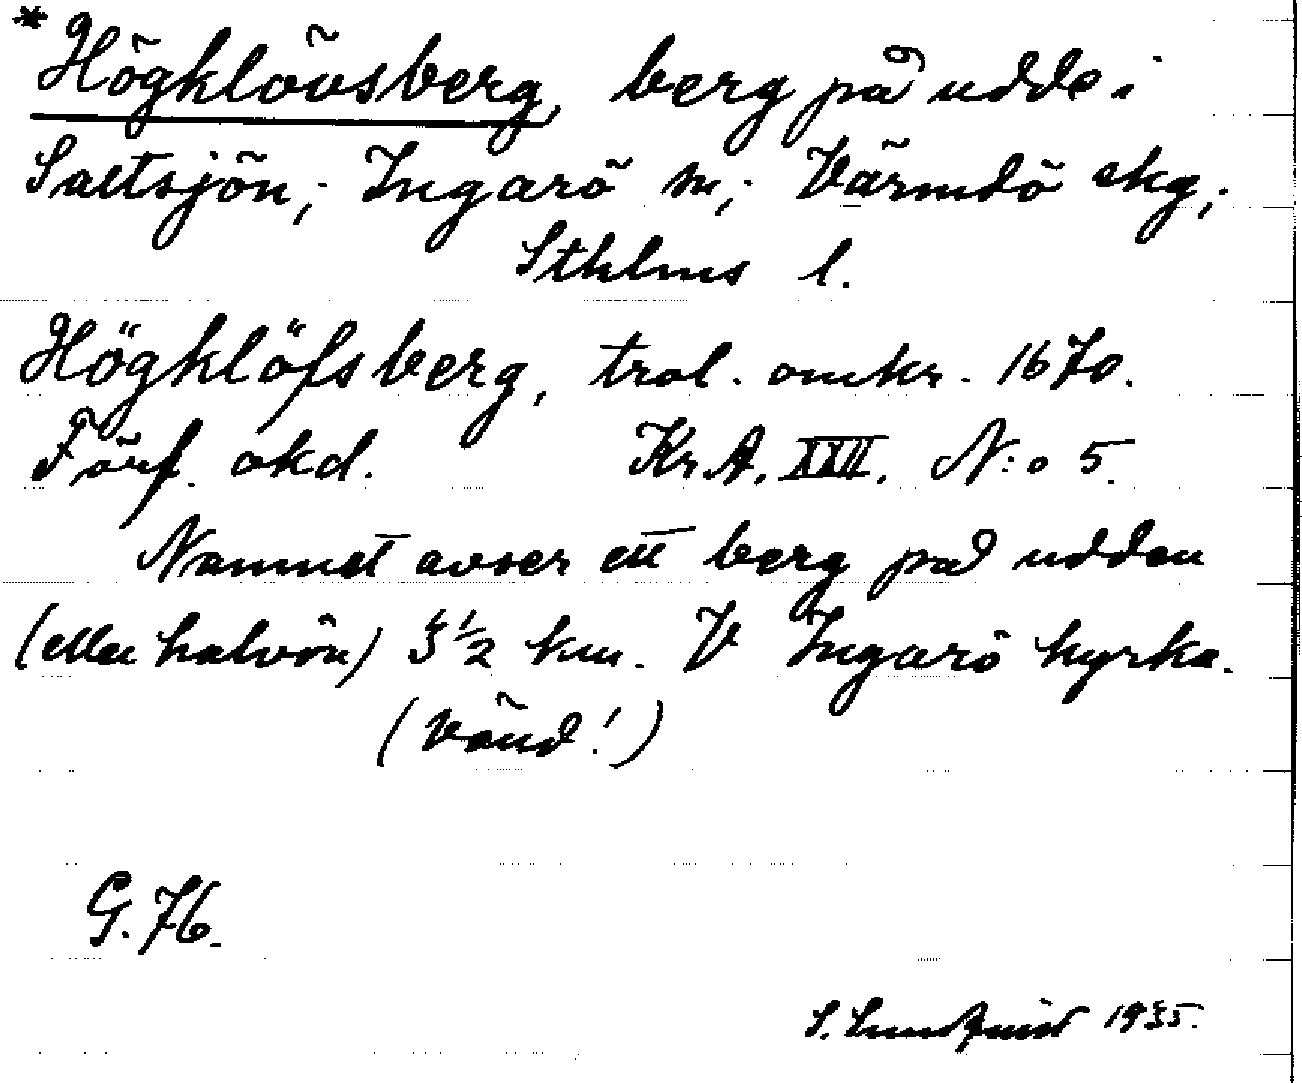 * Högklövsberg, berg på udde i
Saltsjön; Ingarö sn; Värmdö skg;
Sthlms l.
Högklöfsberg, trol. omkr. 1670.
Förf. okd. Kr.A. XXII. N:o 5.
Namnet avser ett berg på udden
(eller halvön) 5 1/2 km. V Ingarö kyrka.
(Vänd!)
G. 76.
S. Lundquist 1935.